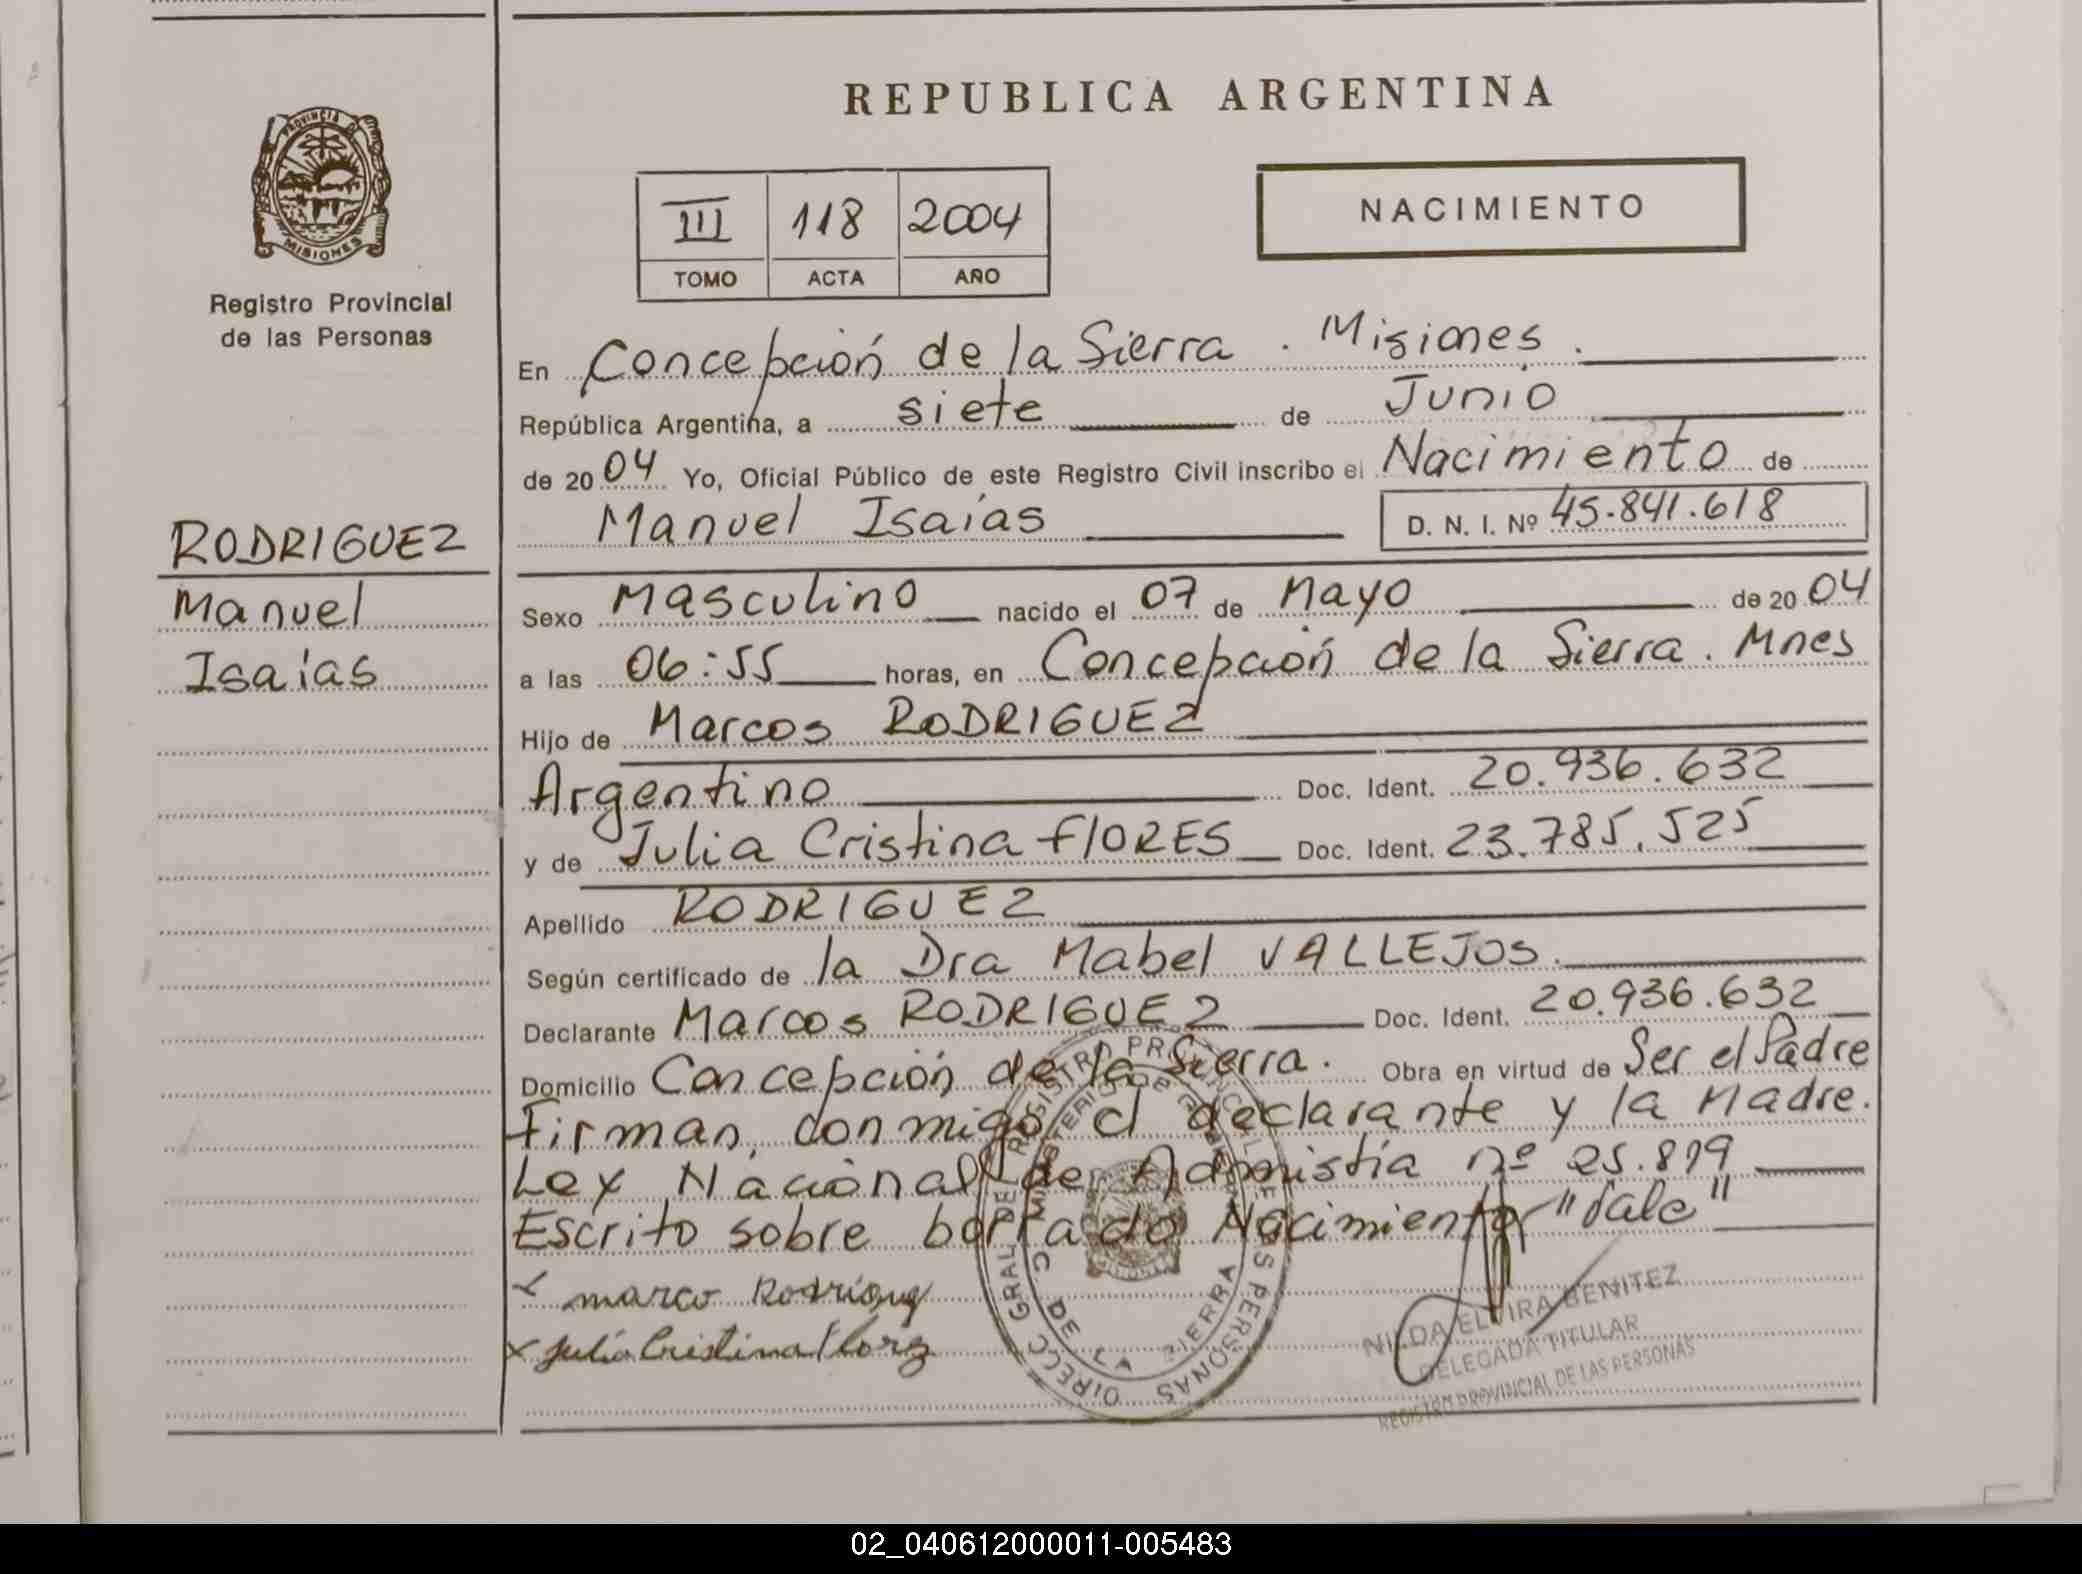 REPUBLICA ARGENTINA
PROVINCIA DE
MISIONES
Registro Provincial
de las Personas
III 118 2004
TOMO ACTA AÑO
NACIMIENTO
En Concepción de la Sierra . Misiones .
República Argentina, a siete de Junio
de 2004 Yo, Oficial Público de este Registro Civil inscribo el Nacimiento de
Manuel Isaías D. N. I. Nº 45.841.618
RODRIGUEZ
Manuel
Isaías
Sexo Masculino nacido el 07 de Mayo de 2004
a las 06:55 horas, en Concepción de la Sierra. Mnes
Hijo de Marcos RODRIGUEZ
Argentino Doc. Ident. 20.936.632
y de Julia Cristina FlORES Doc. Ident. 23.785.525
Apellido RODRIGUEZ
Según certificado de la Dra Mabel VALLEJOS.
Declarante Marcos RODRIGUEZ Doc. Ident. 20.936.632
Domicilio Concepción de la Sierra. Obra en virtud de Ser el Padre
Firman, conmigo el declarante y la Madre.
Ley Nacional de Admistía nº 25.819
Escrito sobre borrado Nacimiento "Vale"
x marco Rodrigue
x Julia Cristina Florez
DIRECC GRAL DE REGISTRO PROVINCIAL DE LAS PERSONAS
C. DE LA SIERRA
NILDA ELVIRA BENITEZ
DELEGADA TITULAR
REGISTRO PROVINCIAL DE LAS PERSONAS
02_040612000011-005483